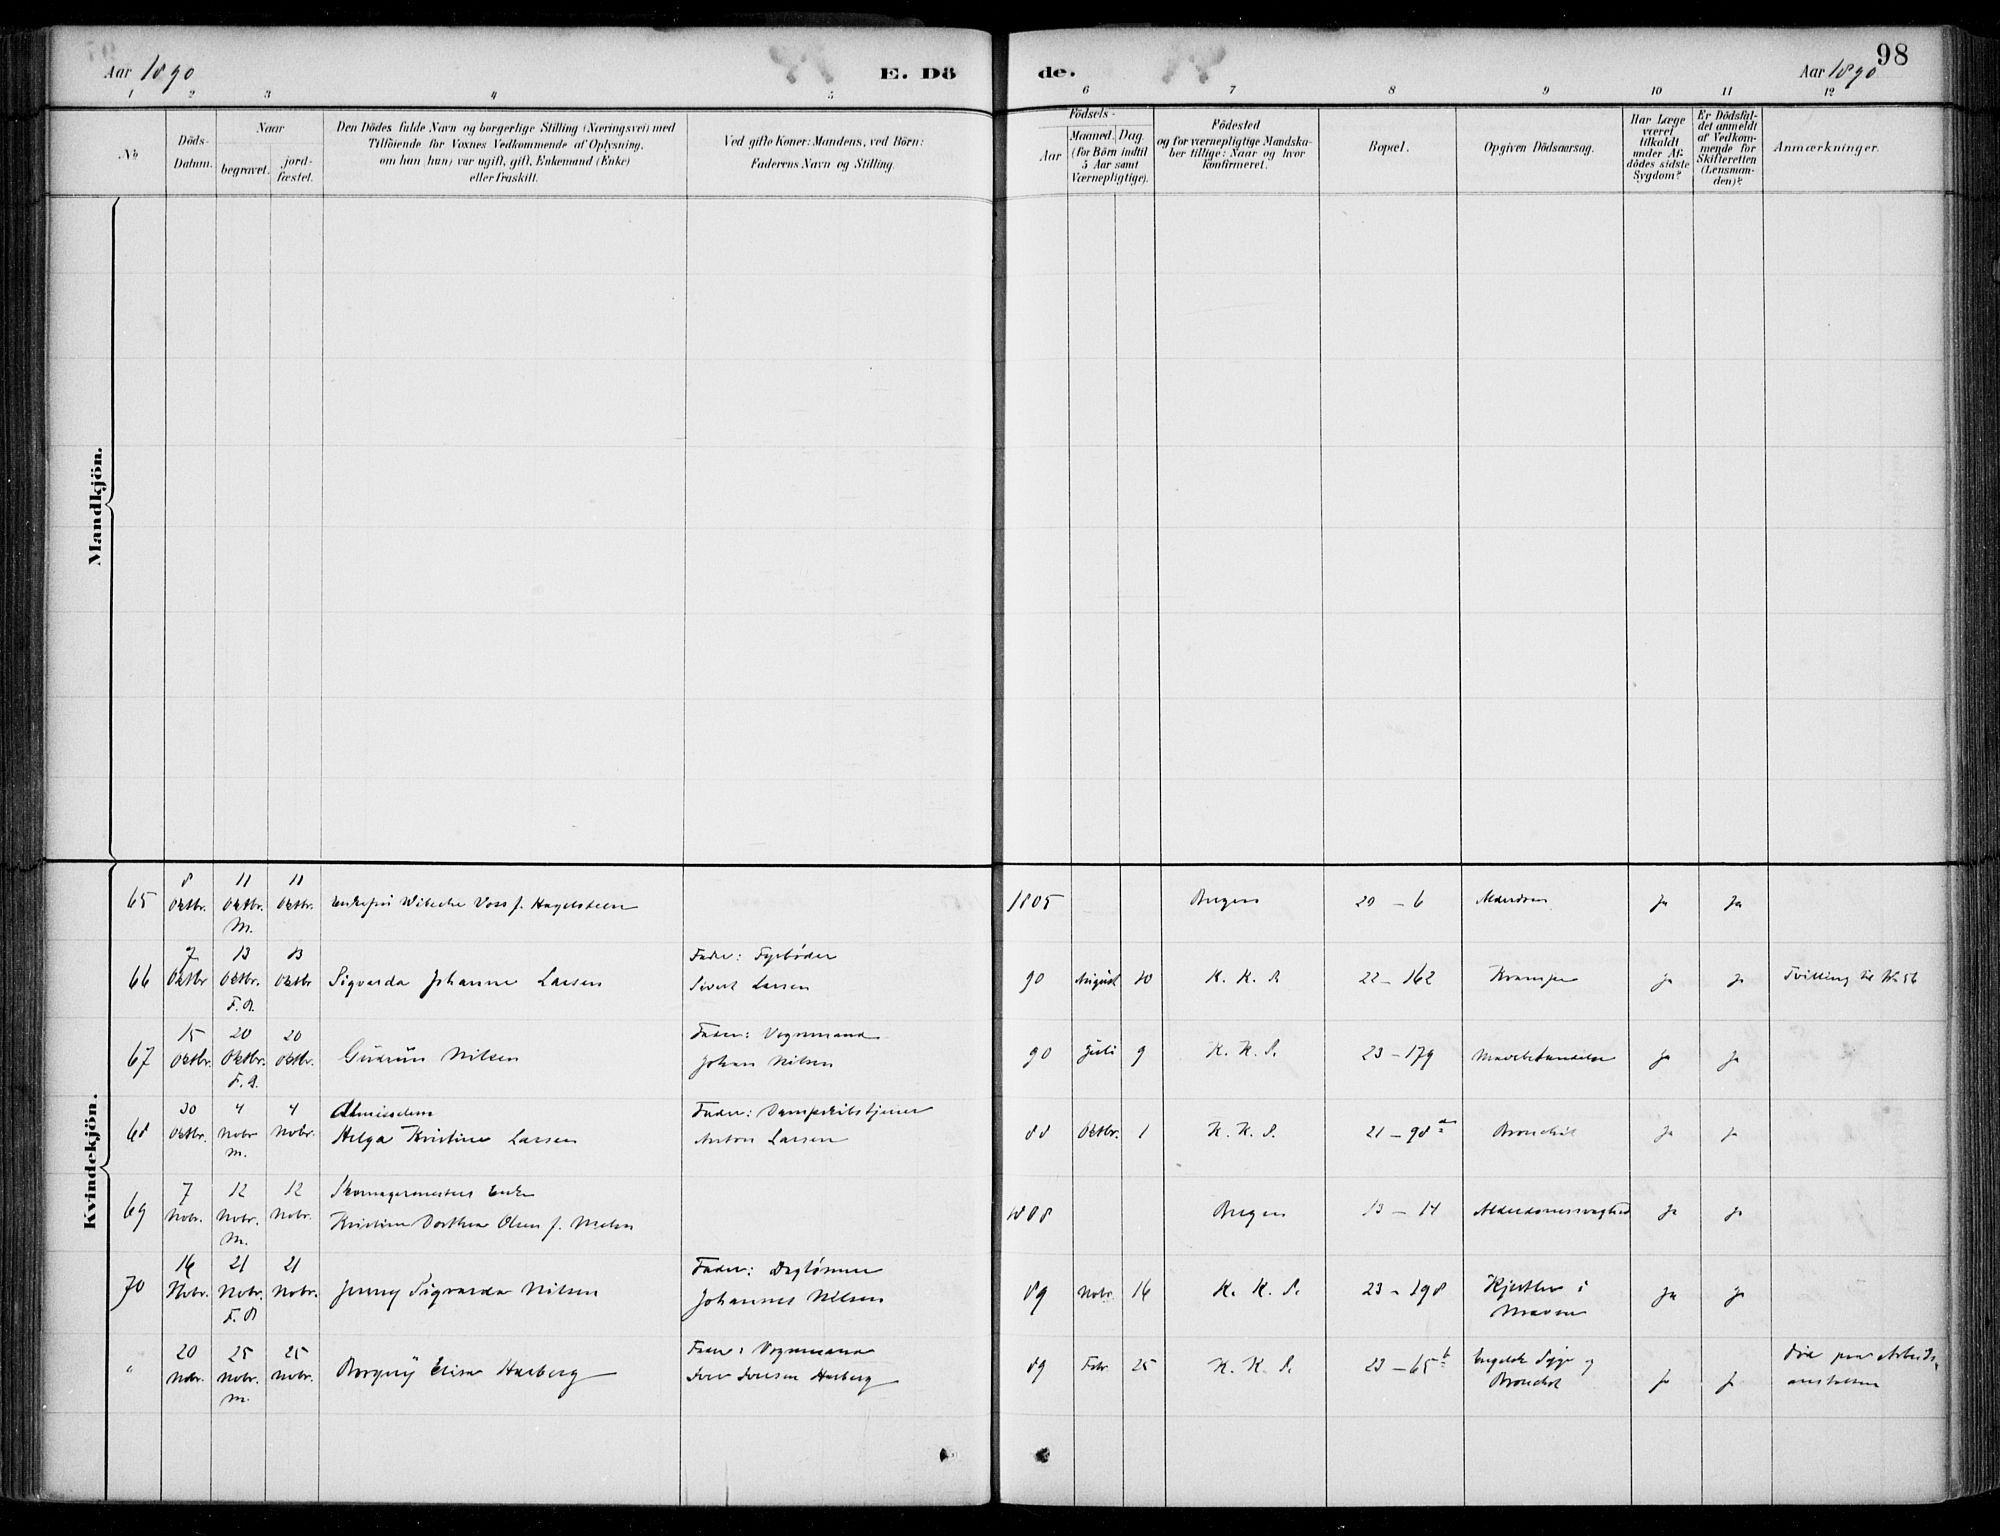 Aar 1890
E. Dö
de.
Aar 1890
98
1 2 3 4 5 6 7 8 9 10 11 12
No
Döds-
Datum.
Naar
begravet.
jord-
fæstet.
Den Dödes fulde Navn og borgerlige Stilling (Næringsvei) med
Tilföiende for Voxnes Vedkommende af Oplysning,
om han (hun) var ugift, gift, Enkemand (Enke)
eller fraskilt.
Ved gifte Koner: Mandens, ved Börn:
Faderens Navn og Stilling.
Födsels-
Aar
Maaned. Dag.
(for Börn indtil
5 Aar samt
Værnepligtige).
Födested
og for værnepligtige Mandska-
ber tillige: Naar og hvor
konfirmeret.
Bopæl.
Opgiven Dödsaarsag.
Har Læge
været
tilkaldt
under Af-
dödes sidste
Sygdom?
Er Dödsfal-
det anmeldt
af Vedkom-
mende for
Skifteretten
(Lensman-
den)?
Anmærkninger.
Mandkjön.
Kvindekjön.
65 8 Oktbr. 11 Oktbr. M. 11 Oktbr. Enkefru Wibeche Voss f. Hagelsteen 1805 Bergen 20 – 6 Alderdom ja ja
66 7 Oktbr 13 Oktbr. 13 Oktbr Sigvarda Johanne Larsen Fader: Fyrbøder
Sivert Larsen 90 August 10 K. K. S. 22 – 162 Krampe ja ja Tvilling til No 56
67 15 Oktbr. 20 Oktbr. 20 Oktbr. Gudrun Nilsen Fader: Vognmand
Johan Nilsen 90 Juli 9 K. K. S. 23 – 179 ja ja
68 30 Oktbr. 4 Nobr M. 4 Nobr. Almisselem
Helga Kristine Larsen Fader: Dampskibstjener
Anton Larsen 88 Oktbr. 1 K. K. S. 21 – 98 a Bronchit ja ja
69 7 Nobr. 12 Nobr. M. 12 Nobr. Skomagermesters Enke
Kristine Dorthea Olsen f. 1808 Bergen 13 – 14 Alderdomssvaghed ja ja
70 16 Nobr. 21 Nobr. 21 Nobr. Jenny Sigvarda Nilsen Fader: Daglønner
Johannes Nilsen 89 Nobr. 16 K. K. S. 23 – 198 Kjertler i
Maven ja ja
" 20 Nobr. 25 Nobr. M. 25 Nobr. Borgny Elise Hauberg Fader: Vognmand
Iver Iversen Hauberg 89 Febr. 25 K. K. S. 23 – 65 b Engelsk Syge og
Bronchit ja ja Død paa Arbeids-
anstalten